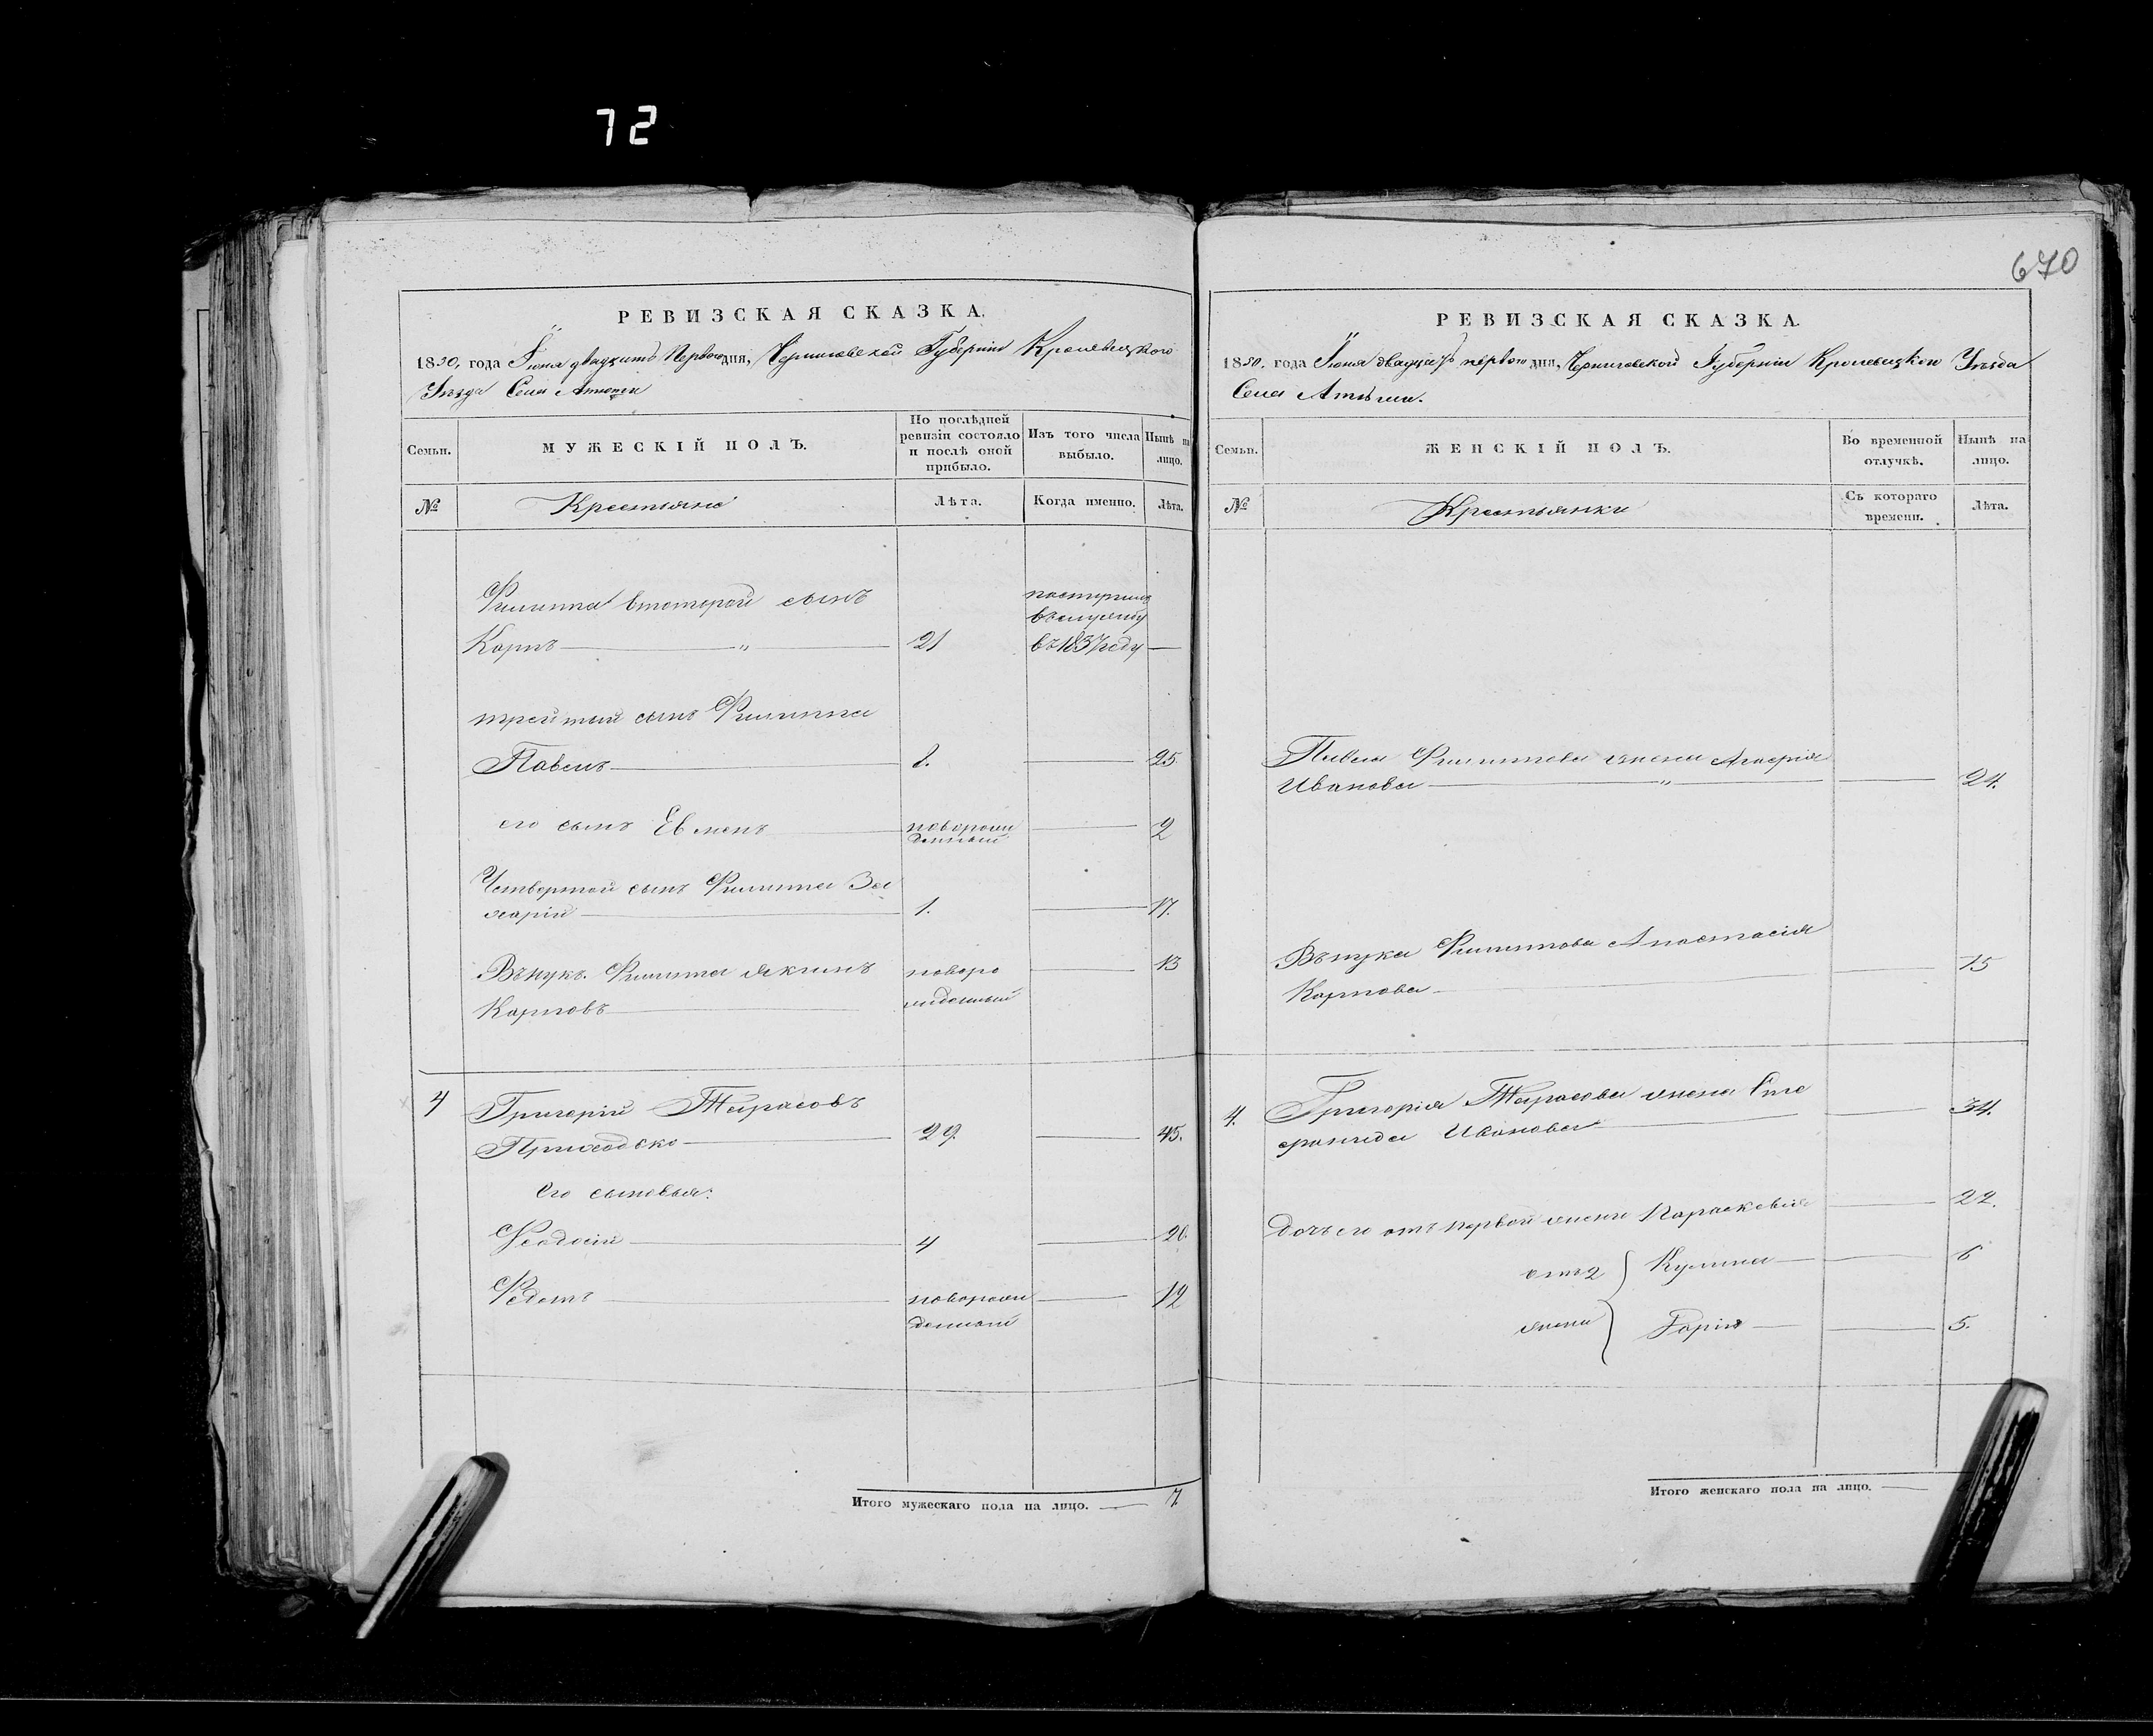 72
670
РЕВИЗСКАЯ СКАЗКА.
1850, года Іюня двадцять Первого дня, Черниговской Губерніи Кролевецкого
Уѣзда Села Атюши
Семьи.
МУЖЕСКІЙ ПОЛЪ.
По послѣдней ревизіи состояло и послѣ оной прибыло.
Изъ того числа выбыло.
Нынѣ на лицо.
№
Крестьяне
Лѣта.
Когда именно.
Лѣта.
Филиппа вторторой сынъ
поступилъ
въ службу
Карпъ 21 въ 1837 году
третьий сынъ Филиппа
Павелъ 8. 25.
его сынъ Евменъ новорож 2
денный
Четвертой сынъ Филиппа За
харій 1. 17.
Вънукъ Филиппа Якимъ новоро 13
Карповъ жденный
4 Григорій Тарасовъ
Приходько 29. 45.
Его сыновья:
Феодосій 4 20.
Федотъ новорож 12
денной
Итого мужескаго пола на лицо. 7.
РЕВИЗСКАЯ СКАЗКА.
1850, года Іюня двадцать первого дня, Черниговской Губерніи Кролевецкого Уѣзда
Села Атюши.
Семьи.
ЖЕНСКІЙ ПОЛЪ.
Во временной отлучкѣ.
Нынѣ на лицо.
№
Крестьянки
Съ котораго времени.
Лѣта.
Павла Филиппова жена
Иванова 24.
Вънука Филиппова Анастасія 15
Карпова
4. Григорія Тарасова жена 34.
Иванова
дочь его отъ первой жены Параскевія 22.
отъ 2 Кулина 6
жены Дарія 5.
Итого женскаго пола на лицо.